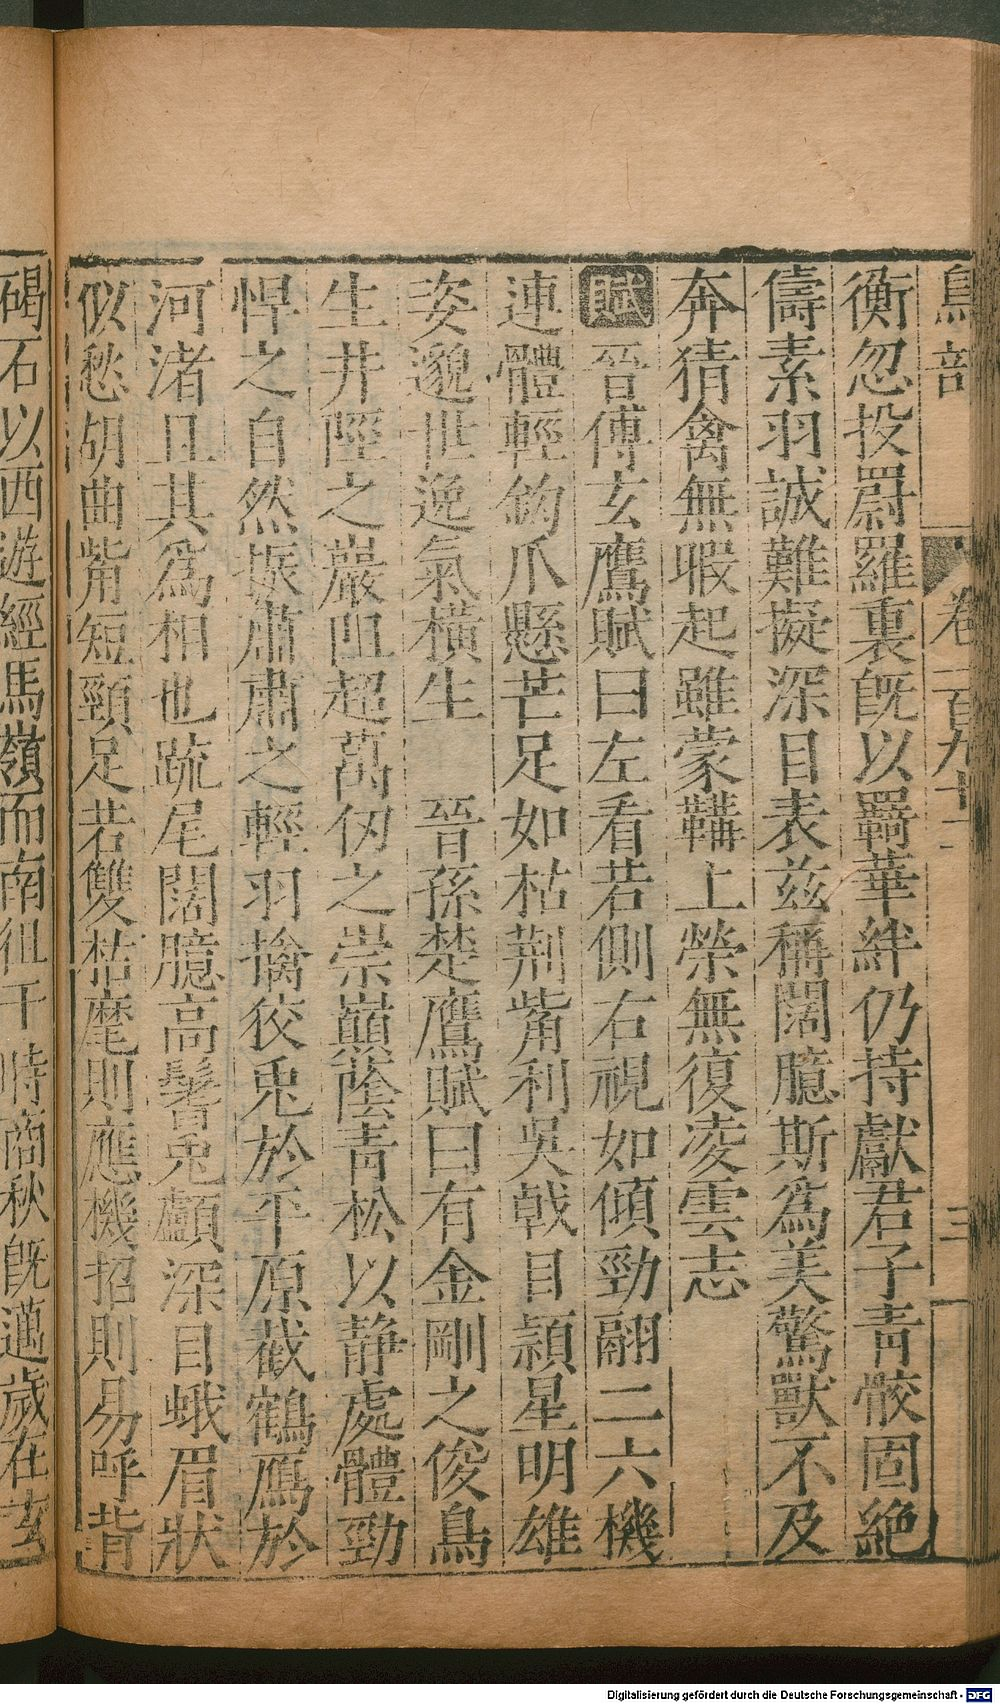 鳥部 卷一百九十一 三
衡忽投罻羅裏旣以羇華絆仍持獻君子青骹固絕
儔素羽誠難擬深目表茲稱闊臆斯爲美驚獸不及
奔猜禽無暇起雖蒙鞲上榮無復凌雲志
賦晉傅玄鷹賦曰左看若側右視如傾勁翮二六機
連體輕鉤爪懸芒足如枯荆觜利吳戟目潁星明雄
姿邈世逸氣橫生 晉孫楚鷹賦曰有金剛之俊鳥
生井陘之巖阻超萬仞之崇巔蔭青松以静處體勁
悍之自然振肅肅之輕羽擒狡兎於平原截鶴鴈於
河渚且其爲相也疏尾闊臆高鬐兎顱深目蛾眉狀
似愁胡曲觜短頸足若雙枯麾則應機招則易呼背
碣石以西遊經馬嶺而南徂于時商秋旣邁歲在玄
Digitalisierung gefördert durch die Deutsche Forschungsgemeinschaft - DFG